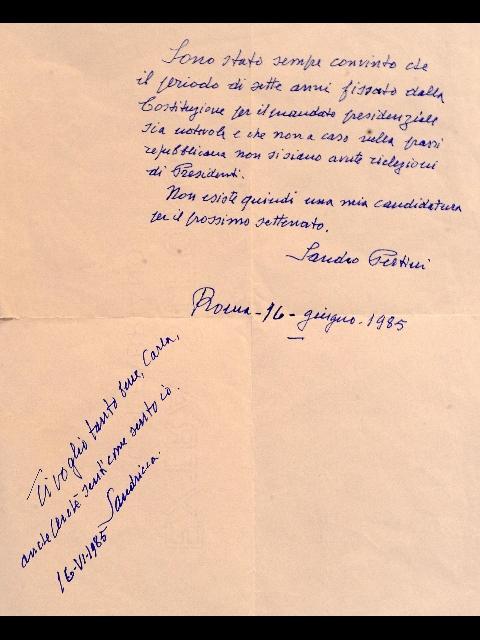 Sono stato sempre convinto che
il periodo di sette anni fissato dalla
Costituzione per il mandato presidenziale
sia notevole e che non a caso nella prassi
repubblicana non si siano avute rielezioni
di Presidenti.
Non esiste quindi una mia candidatura
per il prossimo settennato.
Sandro Pertini
Roma - 16 - giugno. 1985
Ti voglio tanto bene, Carla,
anche perchè senti come sento io.
16-VI-1985